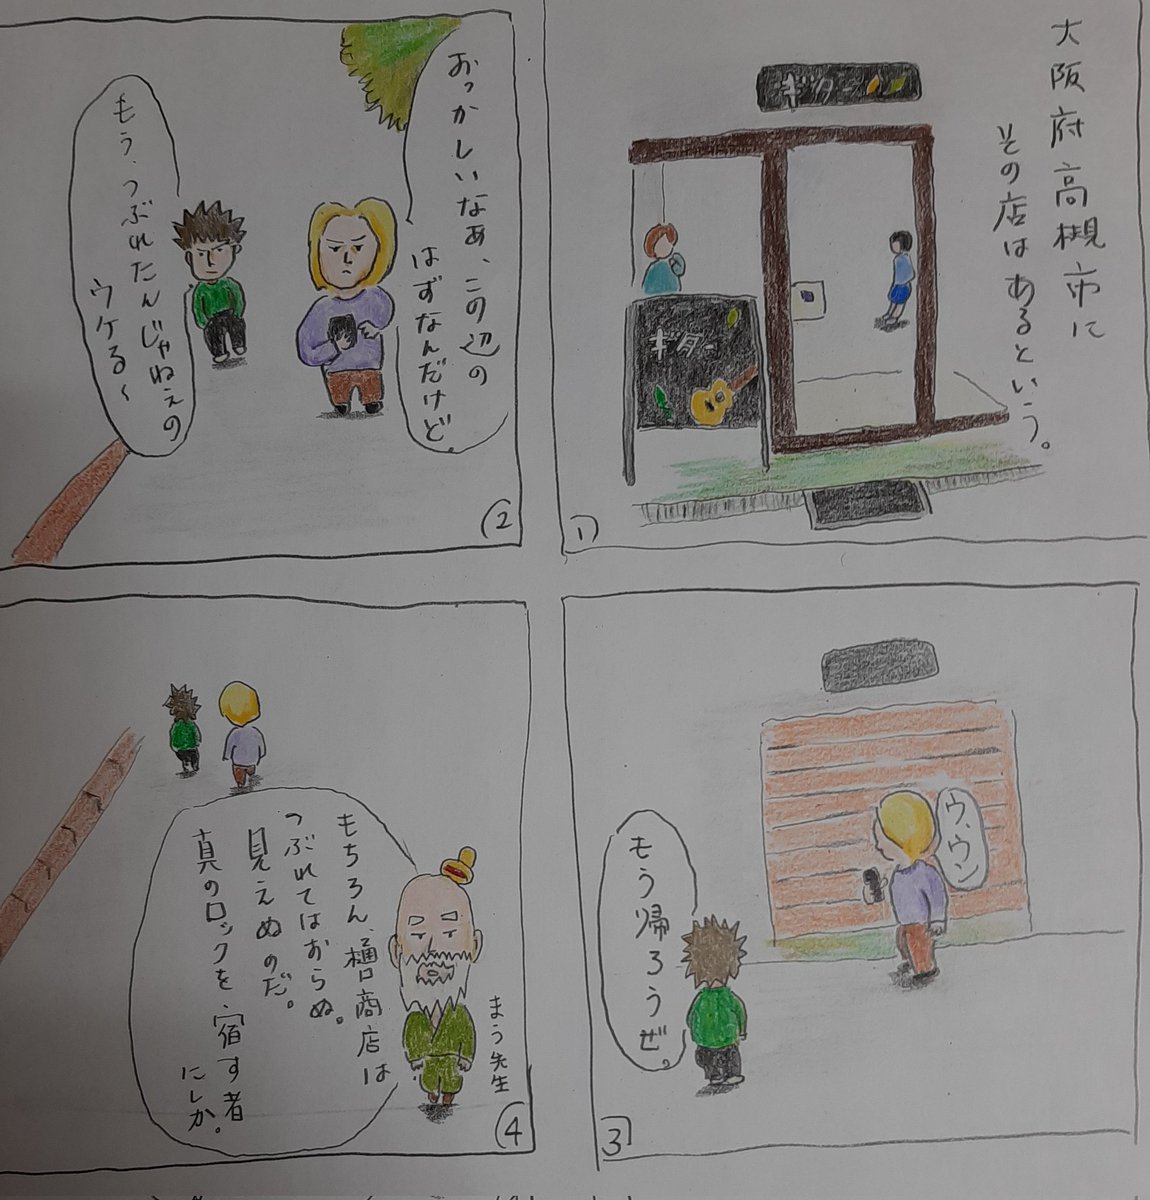 大阪府高槻市に
その店はあるという。
ギター
ギター
1
おっかしいなぁ、この辺の
はずなんだけど。
もう、つぶれたんじゃねぇの
ウケる〜
2
ウ、ウン
もう帰ろうぜ。
3
まう先生
もちろん、樋口商店は
つぶれてはおらぬ。
見えぬのだ。
真のロックを宿す者
にしか。
4